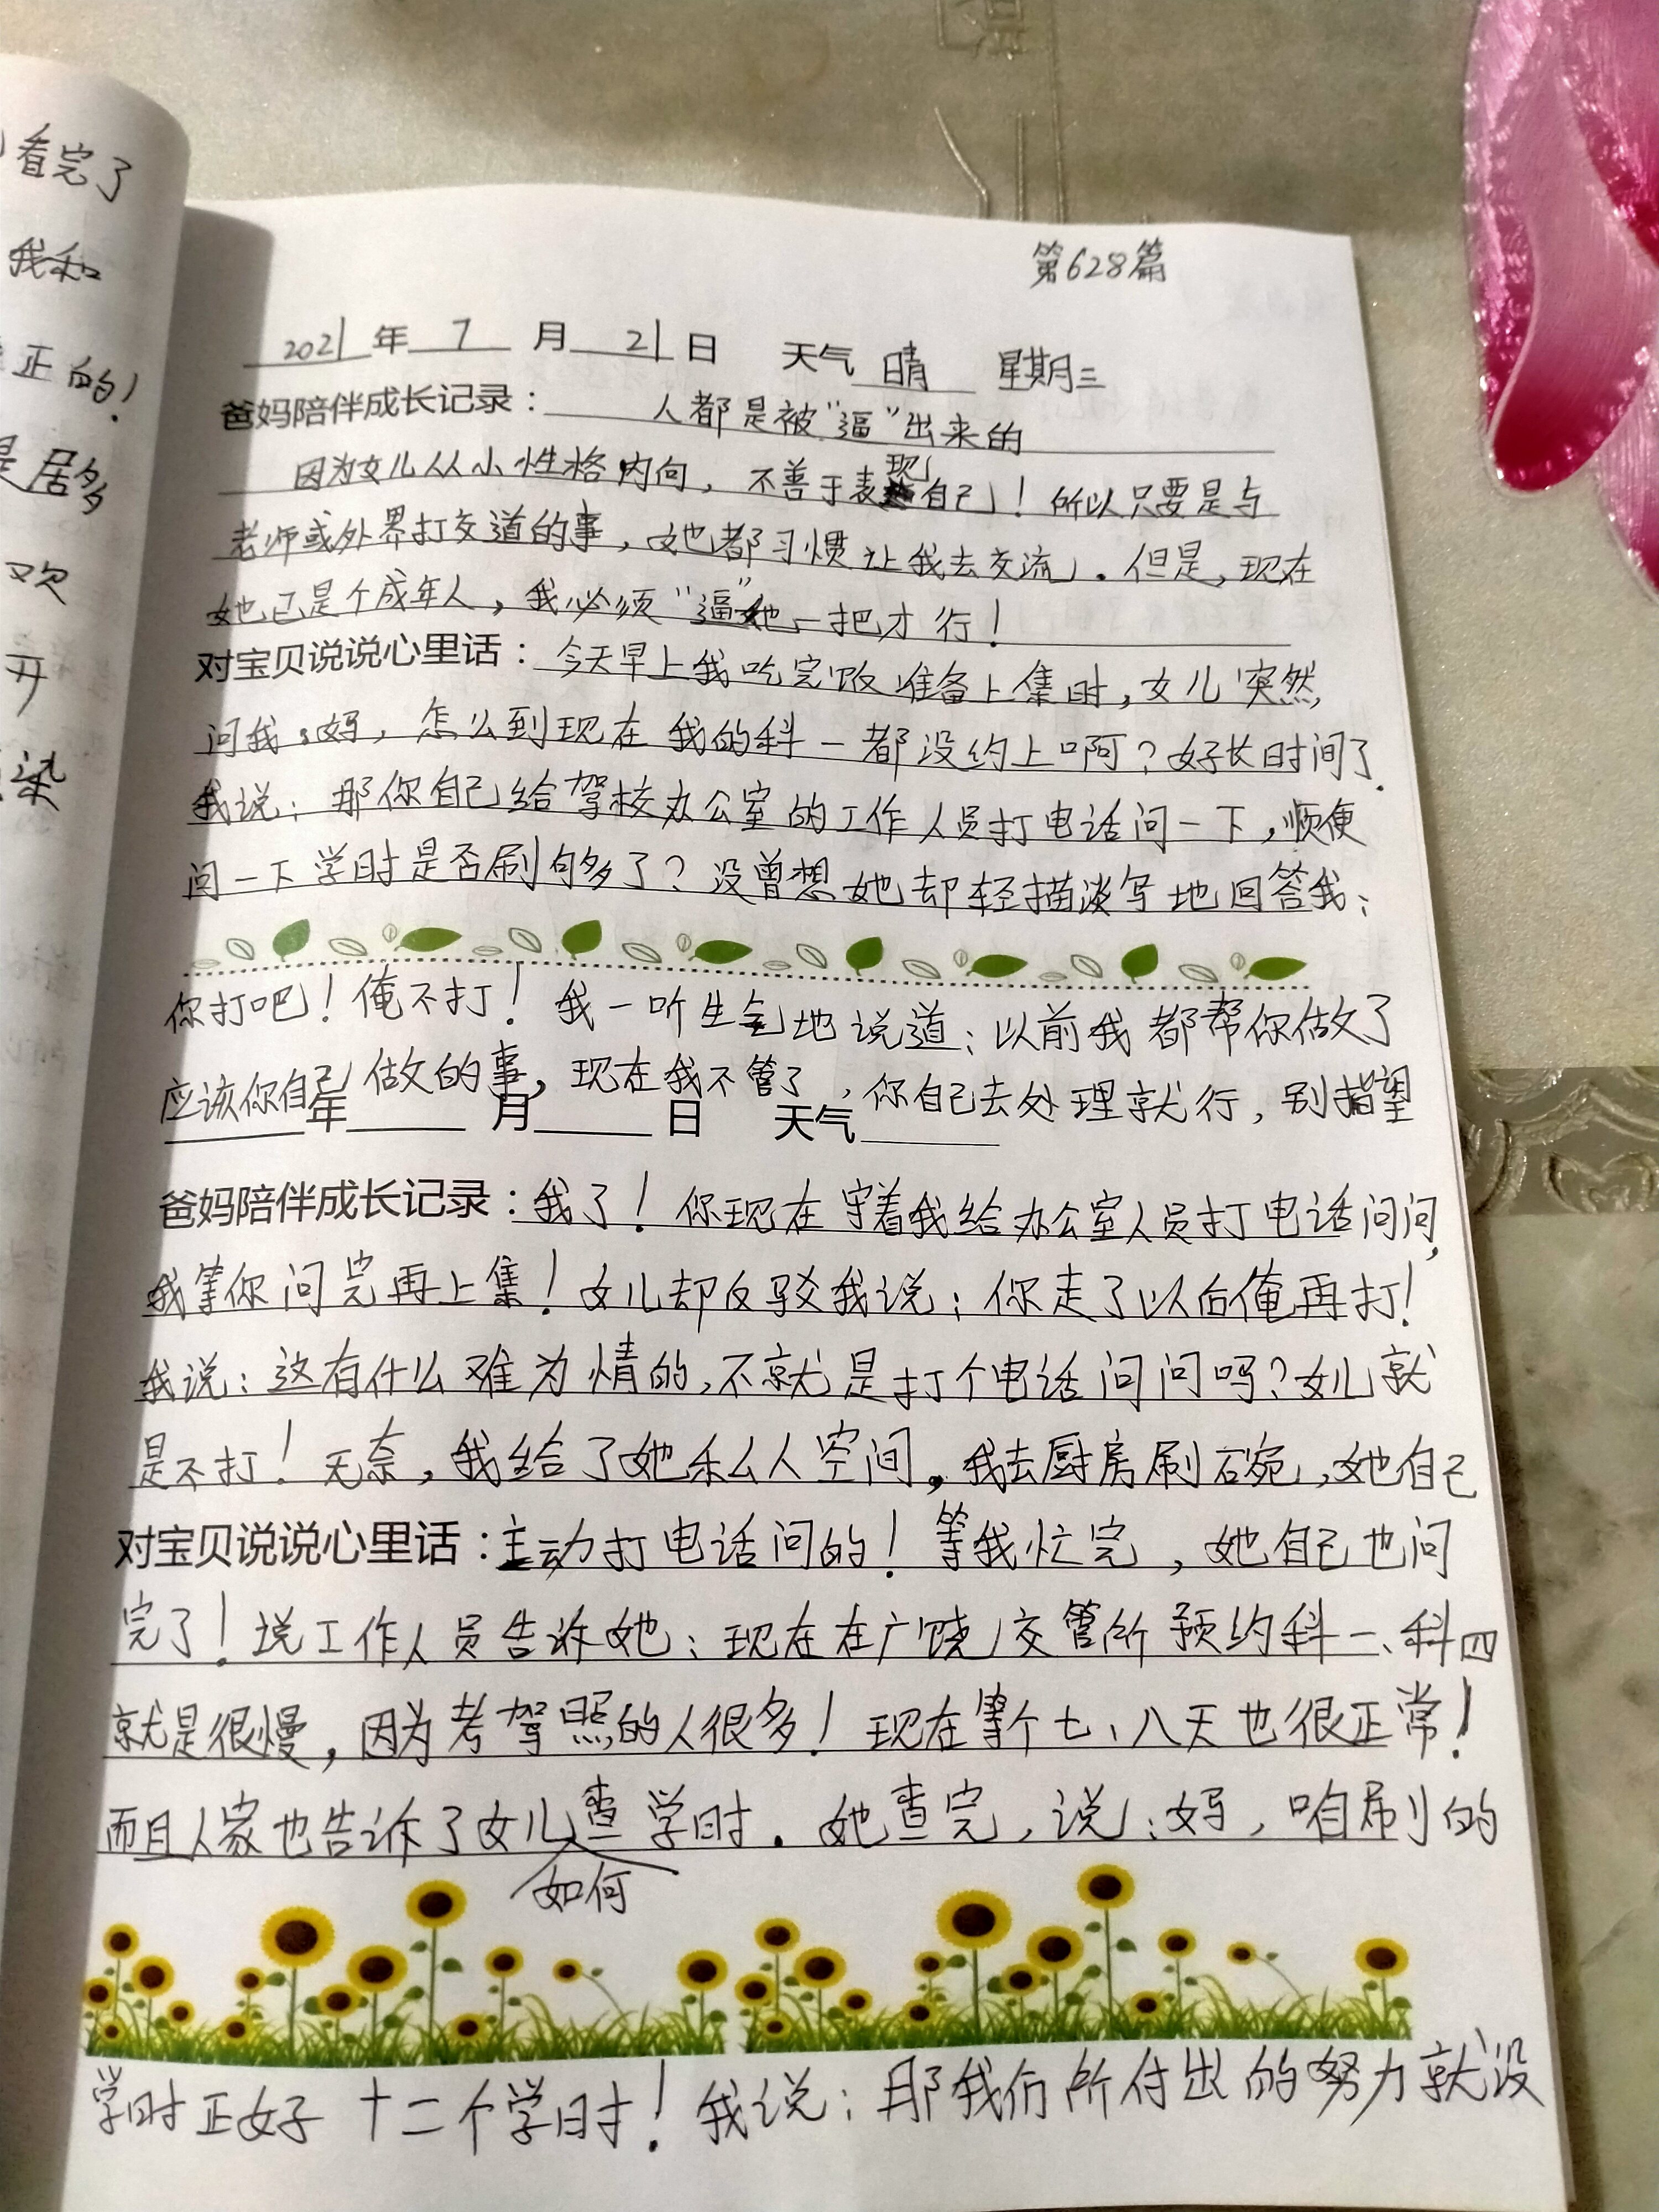 看完了
我和
正的！
是居多
欢
开
染
第628篇
2021年 7 月 21 日 天气 晴 星期三
爸妈陪伴成长记录： 人都是被“逼”出来的
因为女儿从小性格内向，不善于表现自己！所以只要是与
老师或外界打交道的事，她都习惯让我去交流。但是，现在
她已是个成年人，我必须“逼”她一把才行！
对宝贝说说心里话：今天早上我吃完饭准备上集时，女儿突然
问我：妈，怎么到现在我的科一都没约上啊？好长时间了．
我说：那你自己给驾校办公室的工作人员打电话问一下，顺便
问一下学时是否刷够多了？没曾想她却轻描淡写地回答我：
你打吧！俺不打！我一听生气地说道：以前我都帮你做了
应该你自己做的事，现在我不管了，你自己去处理就行，别指望
年 月 日 天气
爸妈陪伴成长记录：我了！你现在守着我给办公室人员打电话问问，
我等你问完再上集！女儿却反驳我说：你走了以后俺再打！
我说：这有什么难为情的，不就是打个电话问问吗？女儿就
是不打！无奈，我给了她私人空间，我去厨房刷碗，她自己
对宝贝说说心里话：主动打电话问的！等我忙完，她自己也问
完了！说工作人员告诉她：现在在广饶交管所预约科一、科四
就是很慢，因为考驾照的人很多！现在等个七、八天也很正常！
而且人家也告诉了女儿如何查学时。她查完，说：妈，咱刷的
学时正好十二个学时！我说：那我们所付出的努力就没